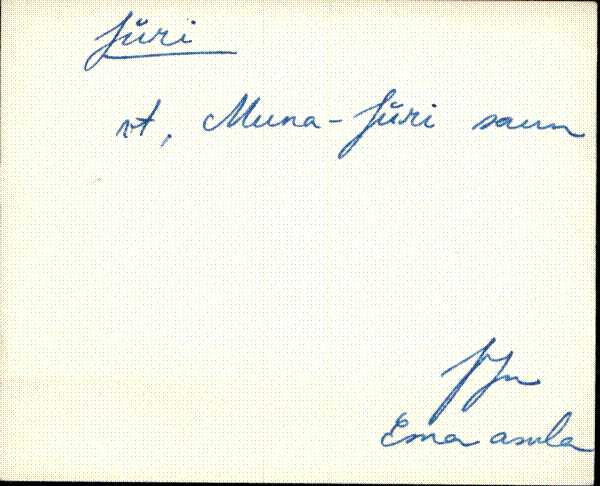 Jüri
vt. Muna-Jüri saun
JJn
Ema asula